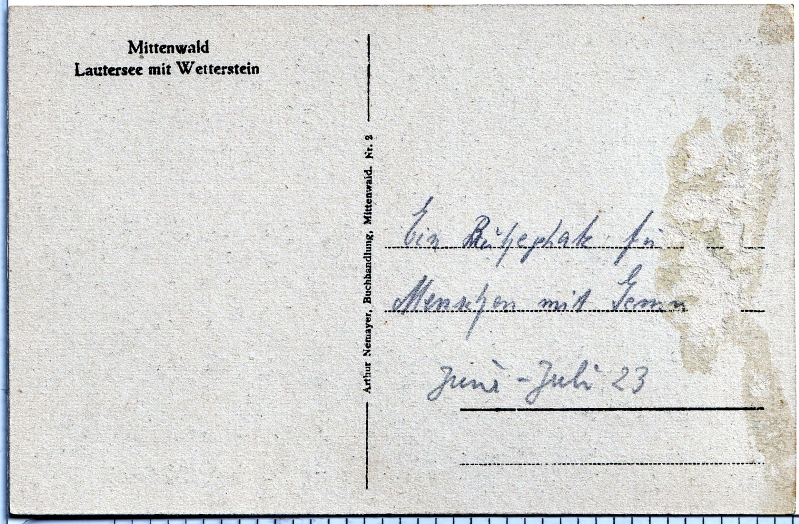 Mittenwald
Lautersee mit Wetterstein
Arthur Nemayer, Buchhandlung, Mittenwald. Nr. 2
Ein Ruheplatz für
Menschen mit
Juni - Juli 23